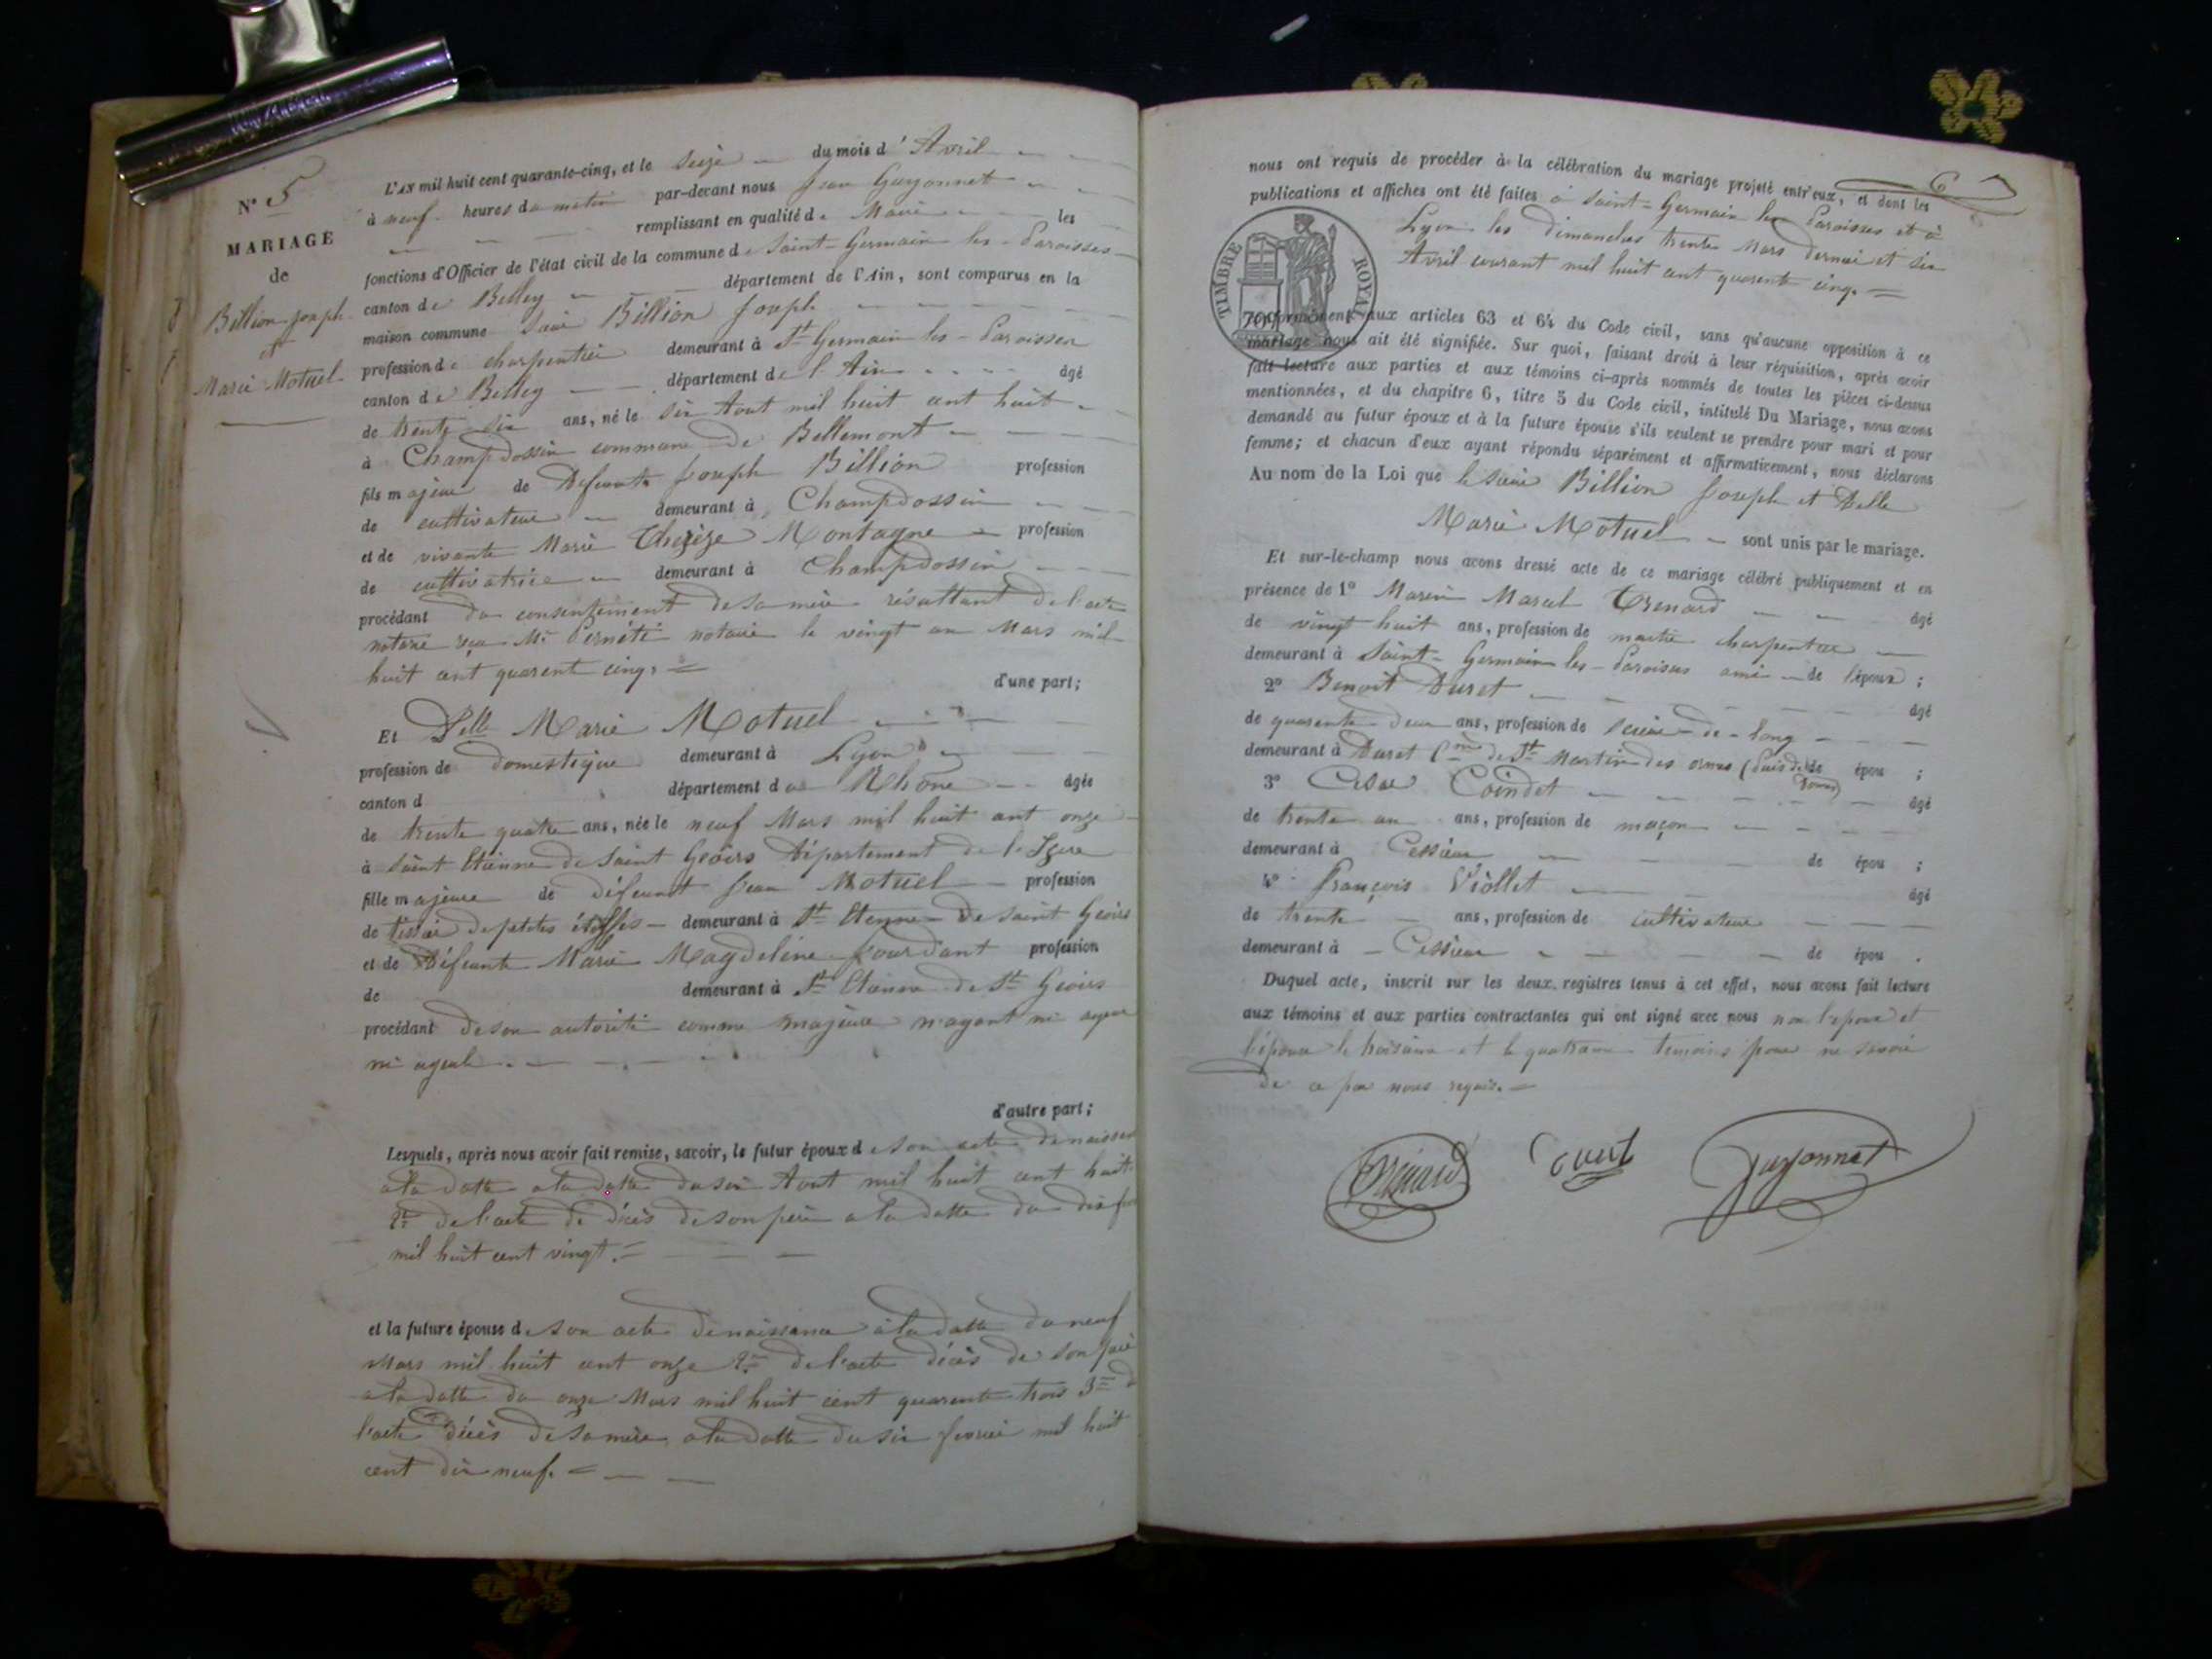 N° 5
MARIAGE
de
Billion Joseph
et
Marie Motuel
L'an mil huit cent quarante-cinq, et le seize du mois d'Avril
à neuf heures du matin par-devant nous Jean Guyonnet
remplissant en qualité de Maire les
fonctions d'Officier de l'état civil de la commune de Saint-Germain les-Paroisses
canton de Belley département de l'Ain, sont comparus en la
maison commune Sieur Billion Joseph
profession de charpentier demeurant à St Germain les-Paroisses
canton de Belley département de l'Ain âgé
de trente six ans, né le six Aout mil huit cent huit
à Champdossin commune de Bellemont
fils majeur de Defunt Joseph Billion profession
de cultivateur demeurant à Champdossin
et de vivante Marie Thérèze Montagne profession
de cultivatrice demeurant à Champdossin
procédant du consentement de sa mère résultant de l'acte
notarié reçu Me Pernéti notaire le vingt un Mars mil
huit cent quarent cinq.
d'une part;
Et Delle Marie Motuel
profession de domestique demeurant à Lyon
canton d département du Rhône âgée
de trente quatre ans, née le neuf Mars mil huit cent onze
à Saint Etienne de Saint Geoirs Département de l'Isere
fille majeure de défeunt Jean Motuel profession
de tissier de petites étoffes demeurant à St Etienne de Saint Geoirs
et de Défeunte Marie Magdeleine Jourdant profession
de demeurant à St Etienne de St Geoirs
procédant de son autorité comme majeure n'ayant ni ayeux
ni ayeule.
d'autre part;
Lesquels, après nous avoir fait remise, savoir, le futur époux de son acte de naissance
a la datte a la datte du six Aout mil huit cent huit
2nt de l'acte de décès de son père a la datte du dix
mil huit cent vingt.
et la future épouse de son acte de naissance à la datte du neuf
Mars mil huit cent onze 2nt de l'acte décès de son père
a la datte du onze Mars mil huit cent quarente trois 3nt de
l'acte de décès de sa mère a la datte du six fevrier mil huit
cent dix neuf.
6
nous ont requis de procéder à la célébration du mariage projeté entr'eux, et dont les
publications et affiches ont été faites à Saint-Germain les Paroisses et à
Lyon les dimanches trente Mars dernier et six
Avril courant mil huit cent quarente cinq.
TIMBRE ROYAL
70
conformément aux articles 63 et 64 du Code civil, sans qu'aucune opposition à ce
mariage nous ait été signifiée. Sur quoi, faisant droit à leur réquisition, après avoir
fait lecture aux parties et aux témoins ci-après nommés de toutes les pièces ci-dessus
mentionnées, et du chapitre 6, titre 5 du Code civil, intitulé Du Mariage, nous avons
demandé au futur époux et à la future épouse s'ils veulent se prendre pour mari et pour
femme; et chacun d'eux ayant répondu séparément et affirmativement, nous déclarons
Au nom de la Loi que le Sieur Billion Joseph et Delle
Marie Motuel sont unis par le mariage.
Et sur-le-champ nous avons dressé acte de ce mariage célébré publiquement et en
présence de 1° Marcel Trenard âgé
de vingt huit ans, profession de maitre charpentier
demeurant à Saint-Germain les-Paroisses ami de l'époux;
2° Benoit Duret âgé
de quarente deux ans, profession de scieur-de-long
demeurant à Duret Cne de St Martin des ormes (Puis de Dome) de épou ;
3° Cesar Coindet âgé
de trente un ans, profession de maçon
demeurant à Cessieux de épou ;
4° François Viollet âgé
de trente ans, profession de cultivateur
demeurant à Cessieux de épou .
Duquel acte, inscrit sur les deux registres tenus à cet effet, nous avons fait lecture
aux témoins et aux parties contractantes qui ont signé avec nous non l'époux et
l'épouse le troisième et le quatrième temoins pour ne savoir
de ce par nous requis.
Trenard Duret Guyonnet